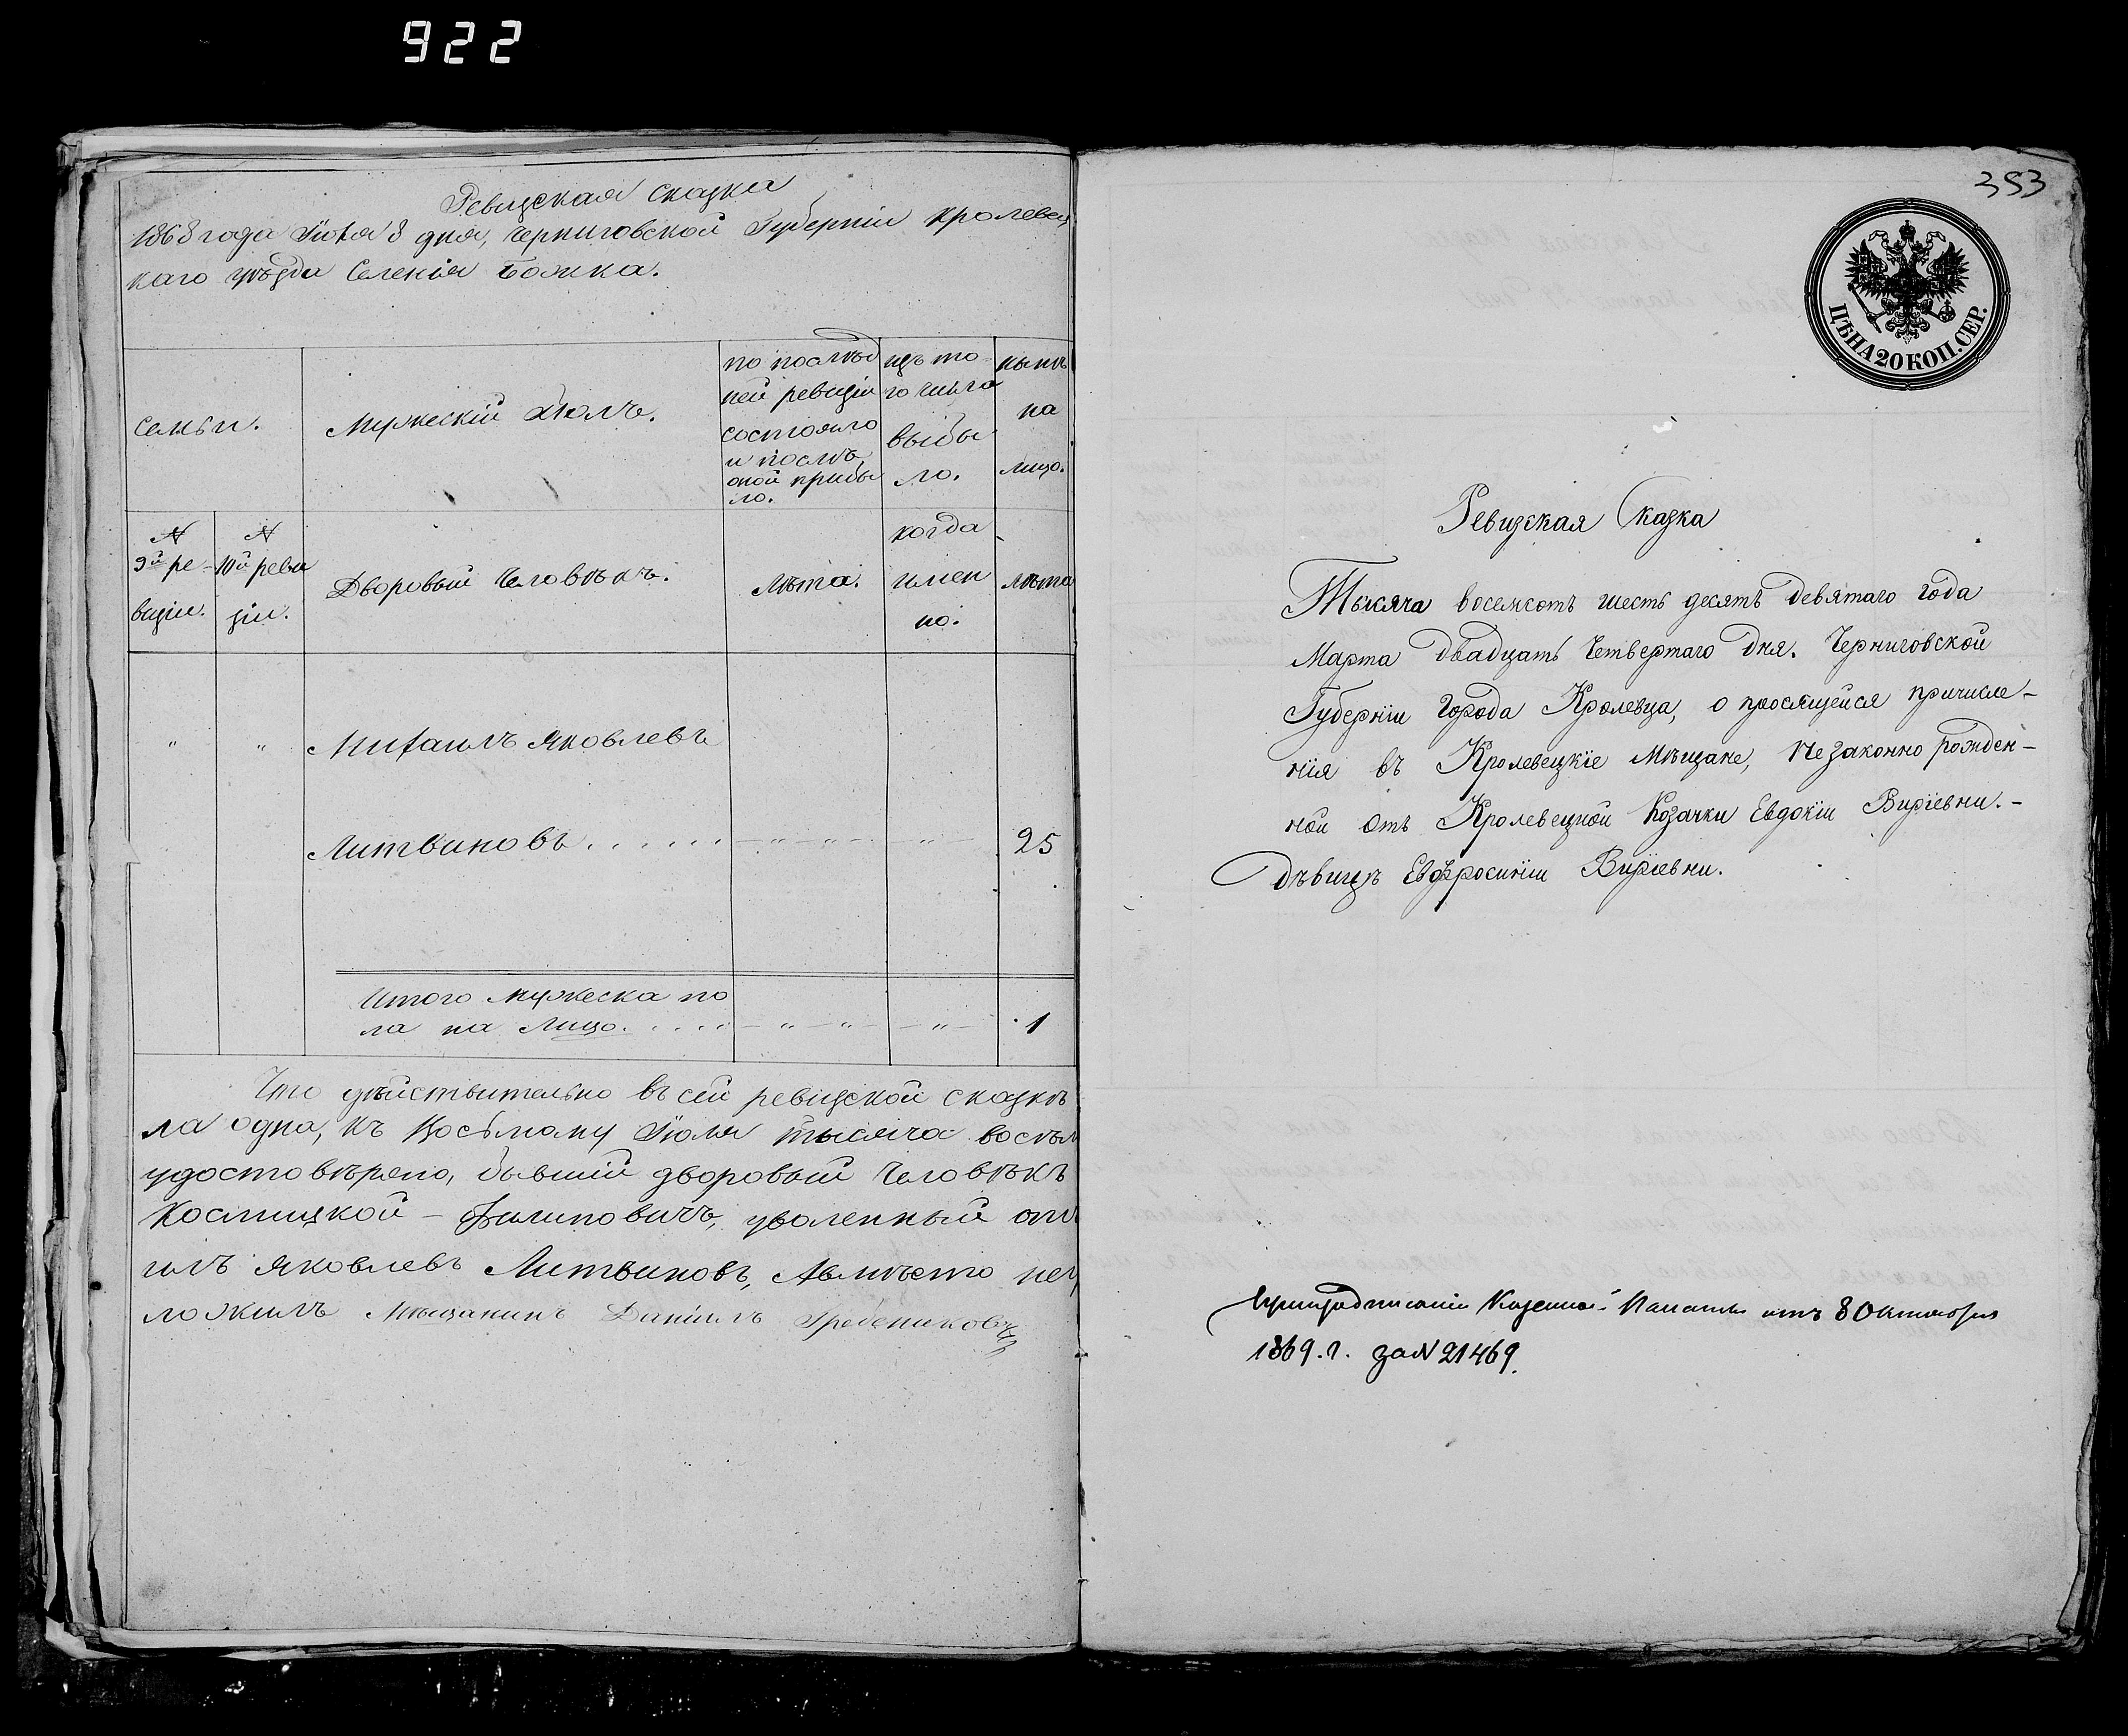 922
Ревизская сказка
1868 года Июля 8 дня, Черниговской Губерніи Кролевец
каго уѣзда Селенія Божка.
Семьи.
Мужескій Полъ.
по послѣд
ней ревизіи
состояло
и послѣ
оной прибы
ло.
изъ то
го числа
выбы
ло.
нынѣ
на
лицо.
№
9й ре-
визіи.
№
10й реви
зіи.
Дворовый Человѣкъ.
Лѣта.
когда
имен
но.
Лѣта
" " Михаилъ Яковлевъ
Литвиновъ . . . . . . " " " 25
Итого мужеска по
ла на Лицо. . . . . " " " 1
Что дѣйствительно въ сей ревизской сказкѣ
ла одна, къ Восьмому Июля тысяча восѣм
удостовѣрено, бывшій дворовый Человѣкъ
Костицкой - Филиповичъ, уволенный от
илъ Яковлевъ Литвиновъ, Авмѣсто не
ложилъ Мѣщанинъ Даніилъ Гребениковъ
353
ЦѢНА 20 КОП. СЕР.
Ревизская Сказка
Тысяча восемсотъ шесть десятъ девятаго года
Марта двадцать Четвертаго дня. Черниговской
Губерніи Города Кролевца, о просящейся причисле-
нія въ Кролевецкіе Мѣщане, Незаконно рожден-
ной отъ Кролевецкой Козачки Евдокіи Виріевни. -
Дѣвицѣ Евфросиніи Виріевни.
Казенной Палаты отъ 8 Октября
1869. г. за № 21469.